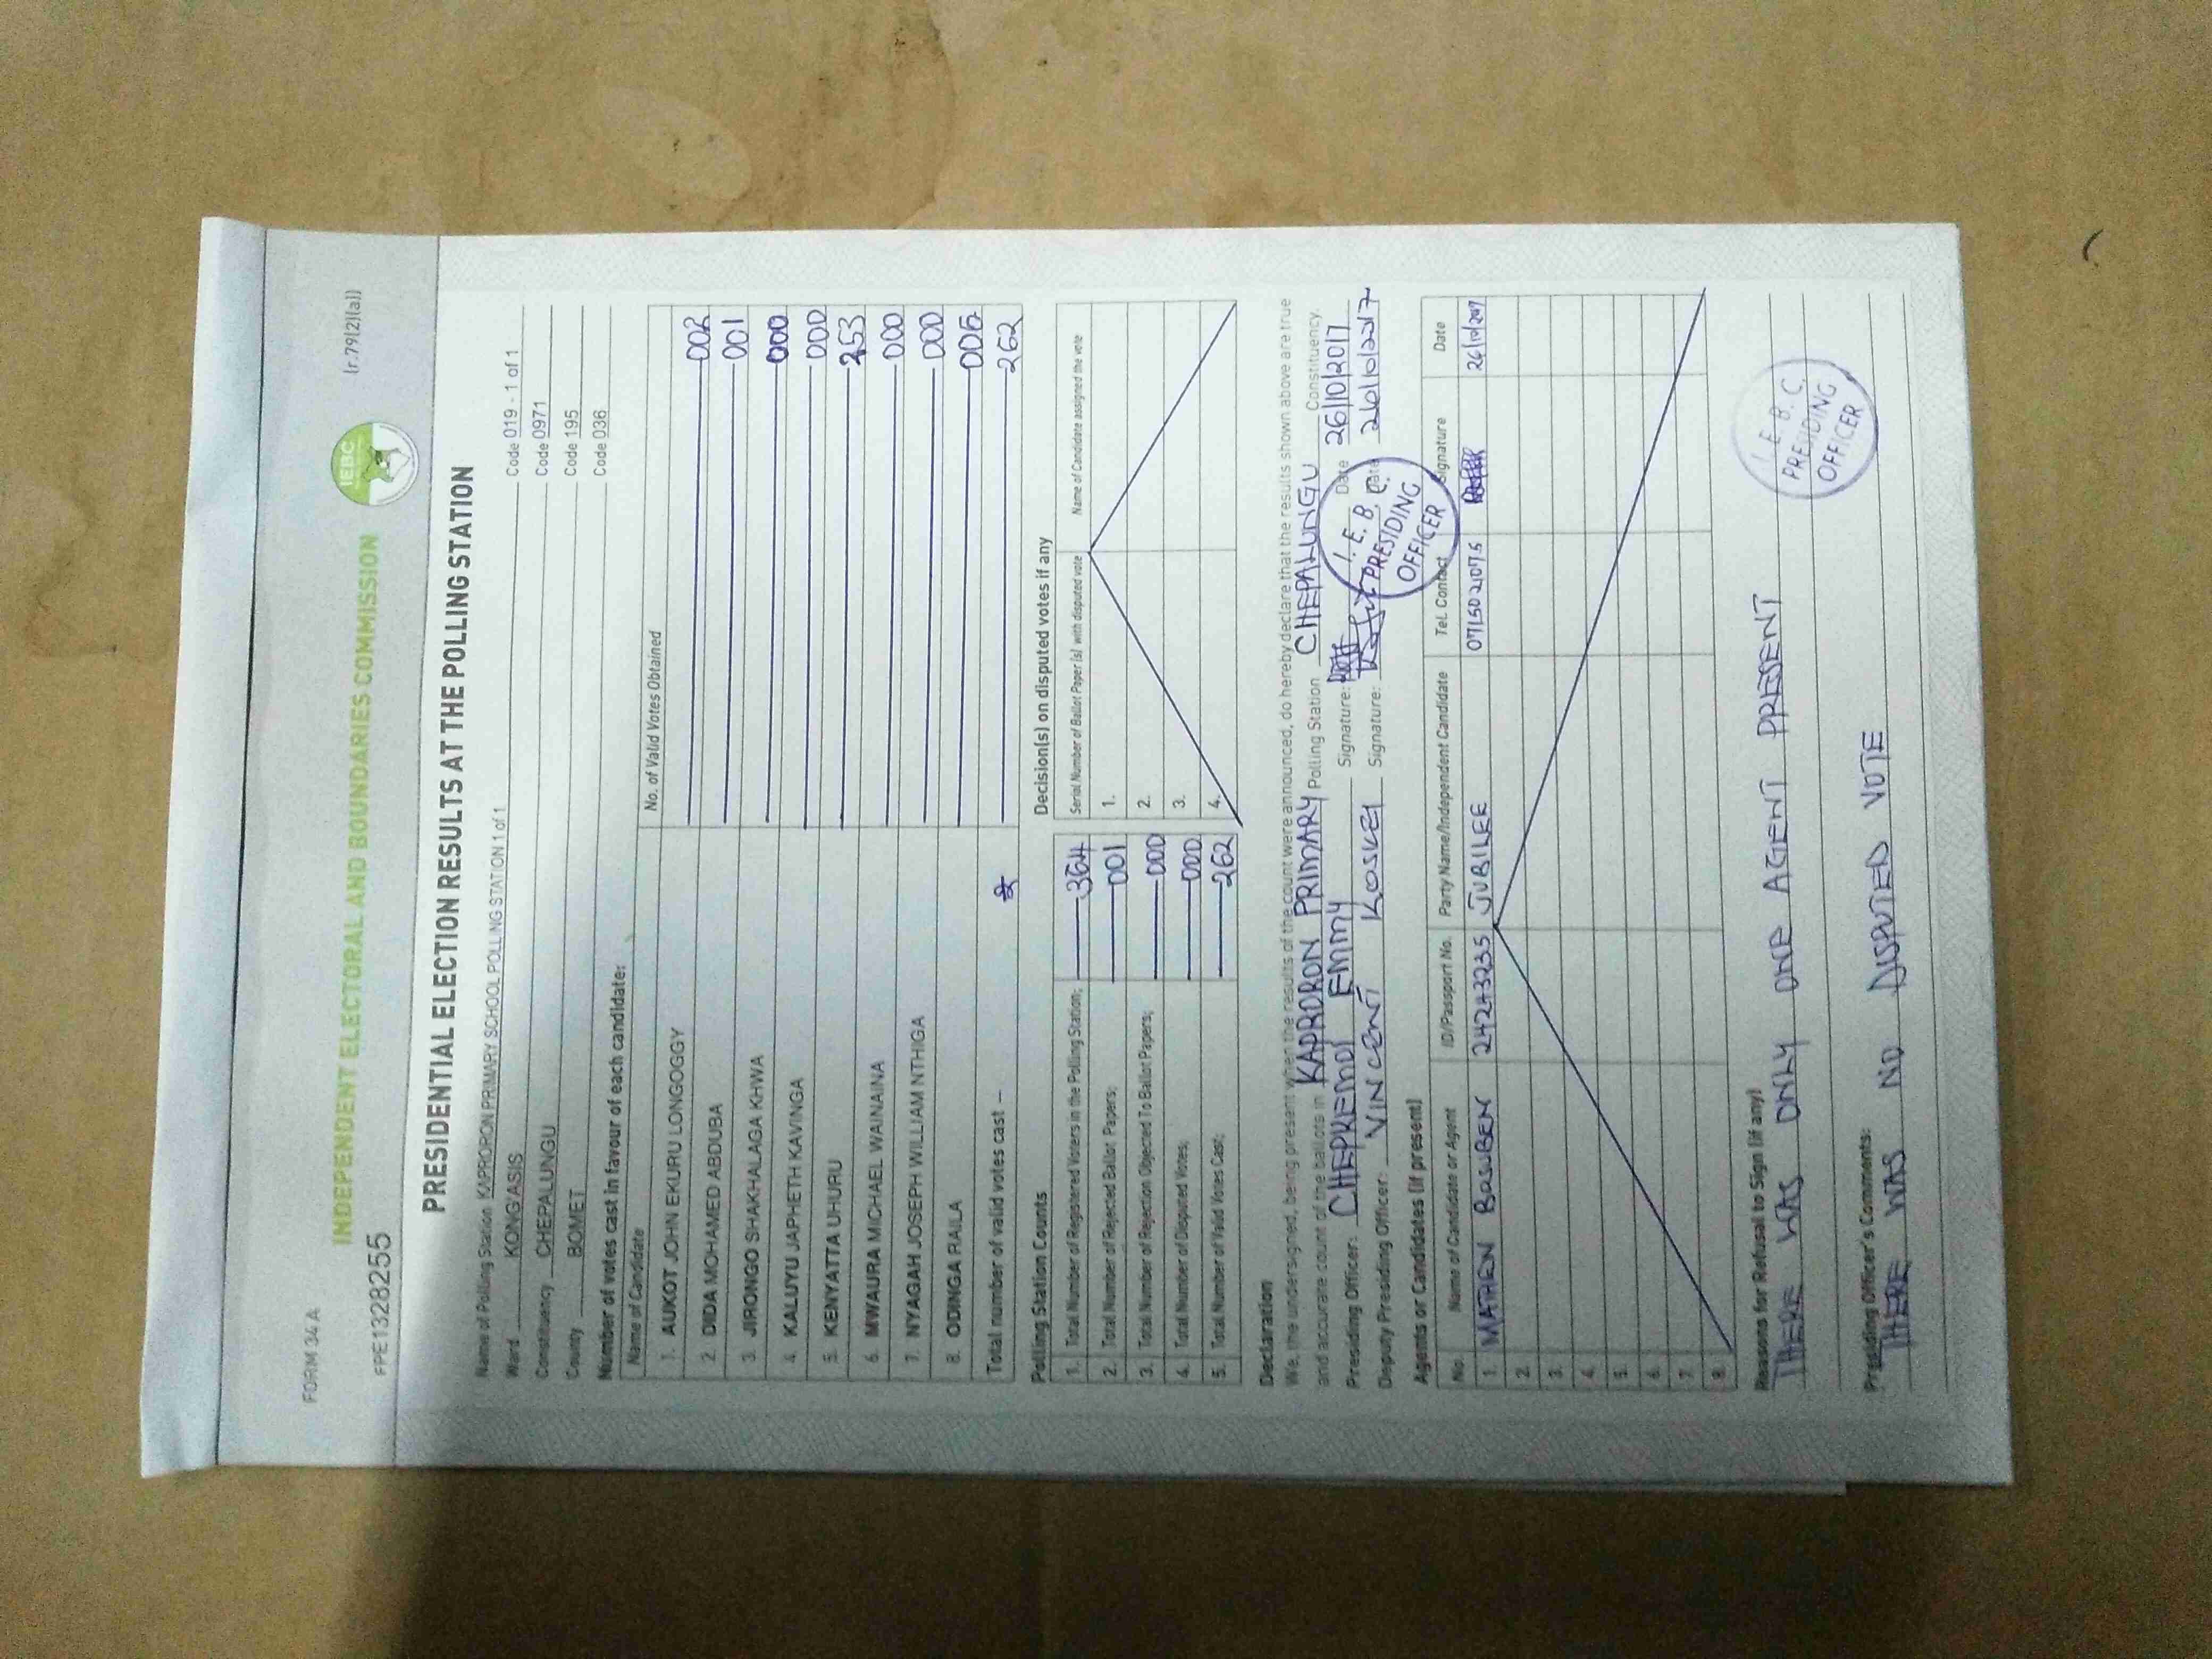 FORM 34 A
(r.79(2)(a))
INDEPENDENT ELECTORAL AND BOUNDARIES COMMISSION
IEBC
FPE1328255
PRESIDENTIAL ELECTION RESULTS AT THE POLLING STATION
Name of Polling Station KAPRORON PRIMARY SCHOOL POLLING STATION 1 of 1 Code 019 - 1 of 1
Ward KONGASIS Code 0971
Constituency CHEPALUNGU Code 195
County BOMET Code 036
Number of votes cast in favour of each candidate:
Name of Candidate No. of Valid Votes Obtained
1. AUKOT JOHN EKURU LONGOGGY 002
2. DIDA MOHAMED ABDUBA 001
3. JIRONGO SHAKHALAGA KHWA 000
4. KALUYU JAPHETH KAVINGA 000
5. KENYATTA UHURU 253
6. MWAURA MICHAEL WAINAINA 000
7. NYAGAH JOSEPH WILLIAM NTHIGA 000
8. ODINGA RAILA 006
Total number of valid votes cast – 262
Polling Station Counts
1. Total Number of Registered Voters in the Polling Station; 364
2. Total Number of Rejected Ballot Papers; 001
3. Total Number of Rejection Objected To Ballot Papers; 000
4. Total Number of Disputed Votes; 000
5. Total Number of Valid Votes Cast; 262
Decision(s) on disputed votes if any
Serial Number of Ballot Paper (s) with disputed vote Name of Candidate assigned the vote
1.
2.
3.
4.
Declaration
We, the undersigned, being present when the results of the count were announced, do hereby declare that the results shown above are true
and accurate count of the ballots in KAPRORON PRIMARY Polling Station CHEPALUNGU Constituency.
Presiding Officer: CHEPKEMOI EMMY Signature: Date 26/10/2017
Deputy Presiding Officer: VINCENT KOSKEI Signature: Date 26/10/2017
I. E. B. C.
PRESIDING
OFFICER
Agents or Candidates (if present)
No. Name of Candidate or Agent ID/Passport No. Party Name/Independent Candidate Tel. Contact Signature Date
1. BOSUBEN 24243235 JUBILEE 0715021075 26/10/2017
2.
3.
4.
5.
6.
7.
8.
Reasons for Refusal to Sign (if any)
THERE WAS ONLY ONE AGENT PRESENT
I. E. B. C.
PRESIDING
OFFICER
Presiding Officer's Comments:
THERE WAS NO DISPUTED VOTE